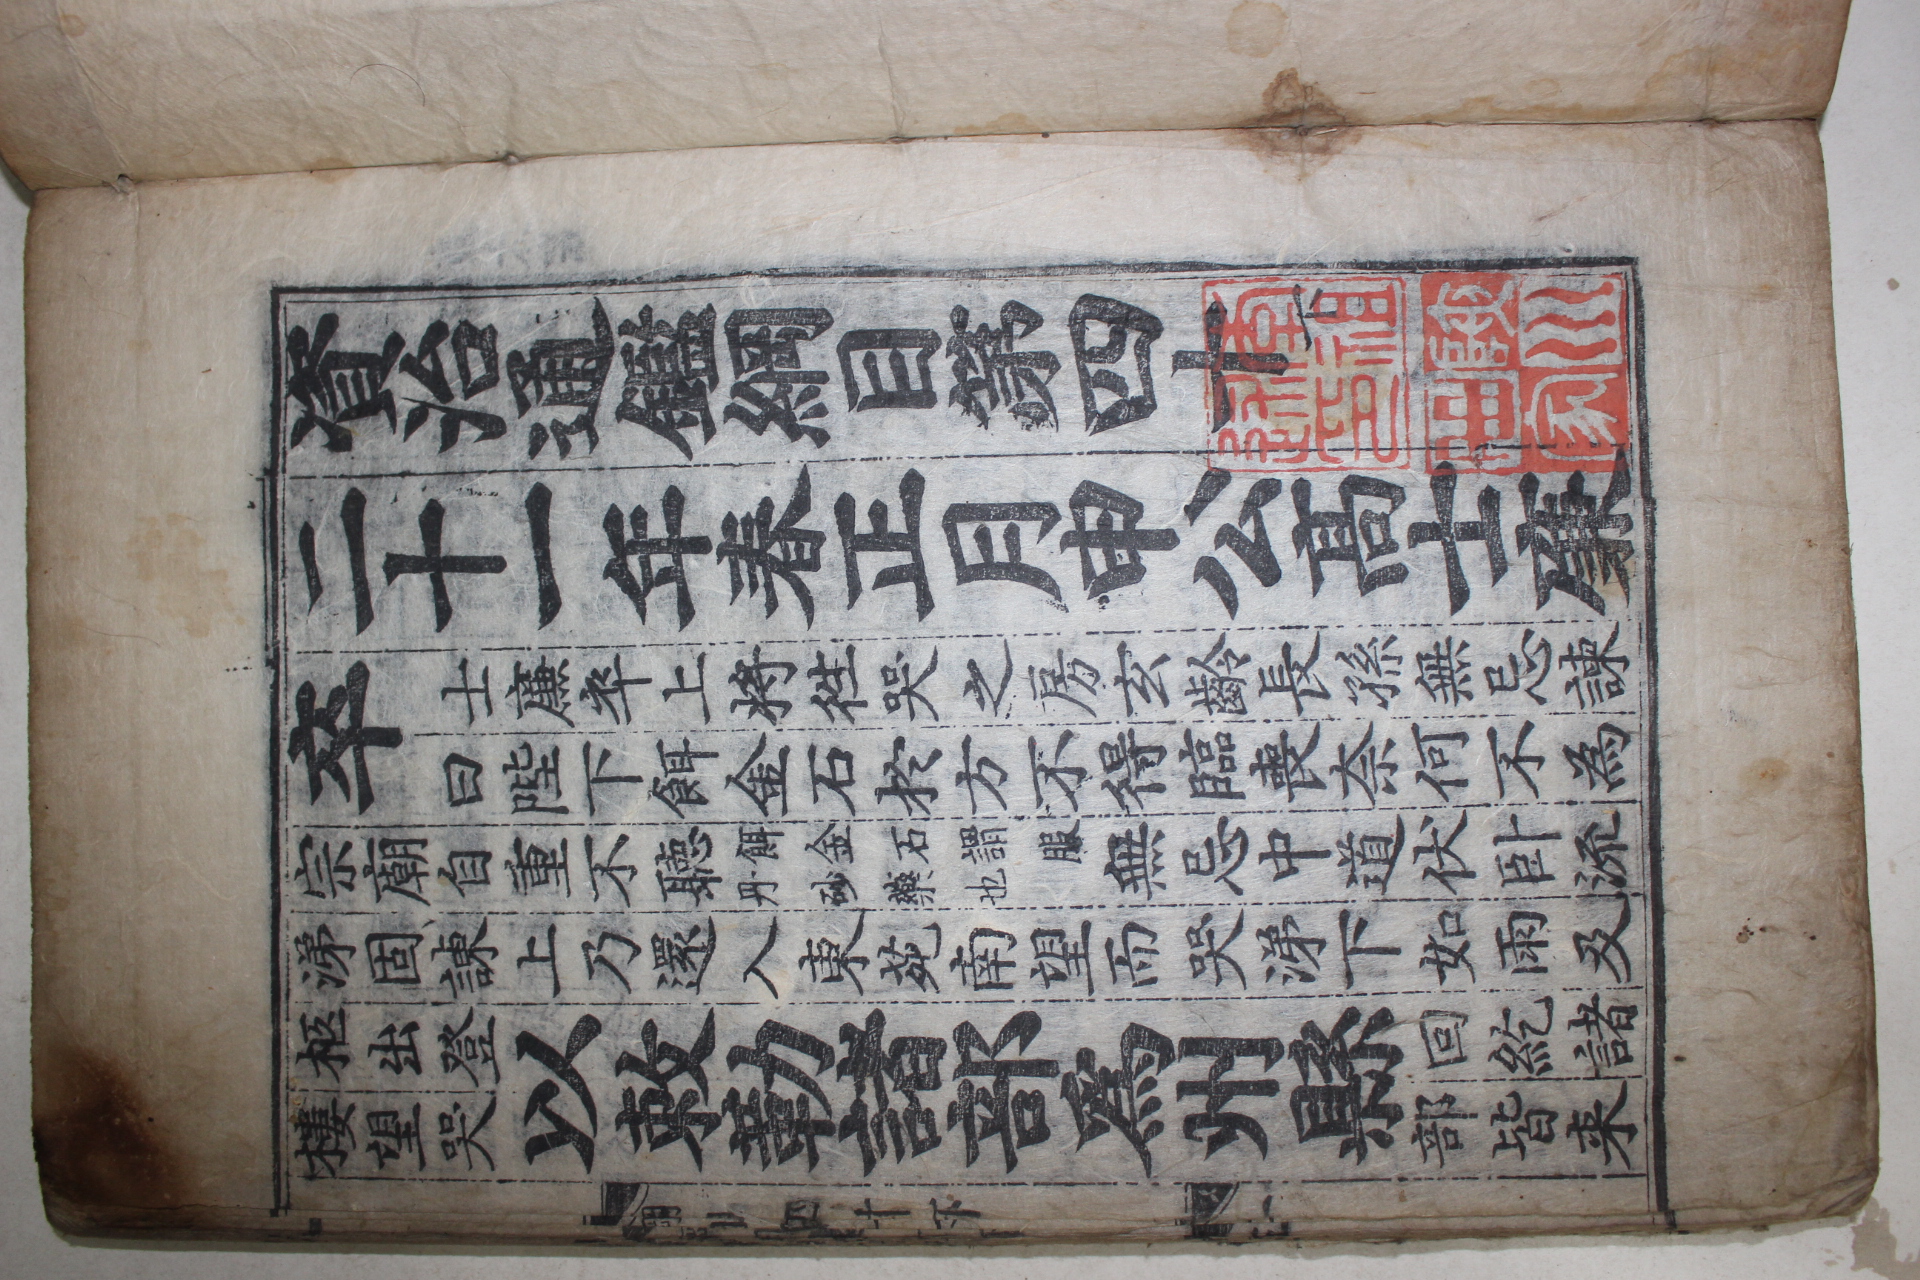 資治通鑑綱目第四十下
二十一年春正月申公高士廉
卒
士廉卒上將往哭之房玄齡長孫無忌諫
曰陛下餌金石於方不得臨喪奈何不為
宗廟自重不聽
餌金石謂服
丹砂藥也
無忌中道伏臥流
涕固諫上乃還入東苑南望而哭涕下如雨及
柩出登
樓望哭
以敕勒諸部為州縣
回紇諸
部皆來